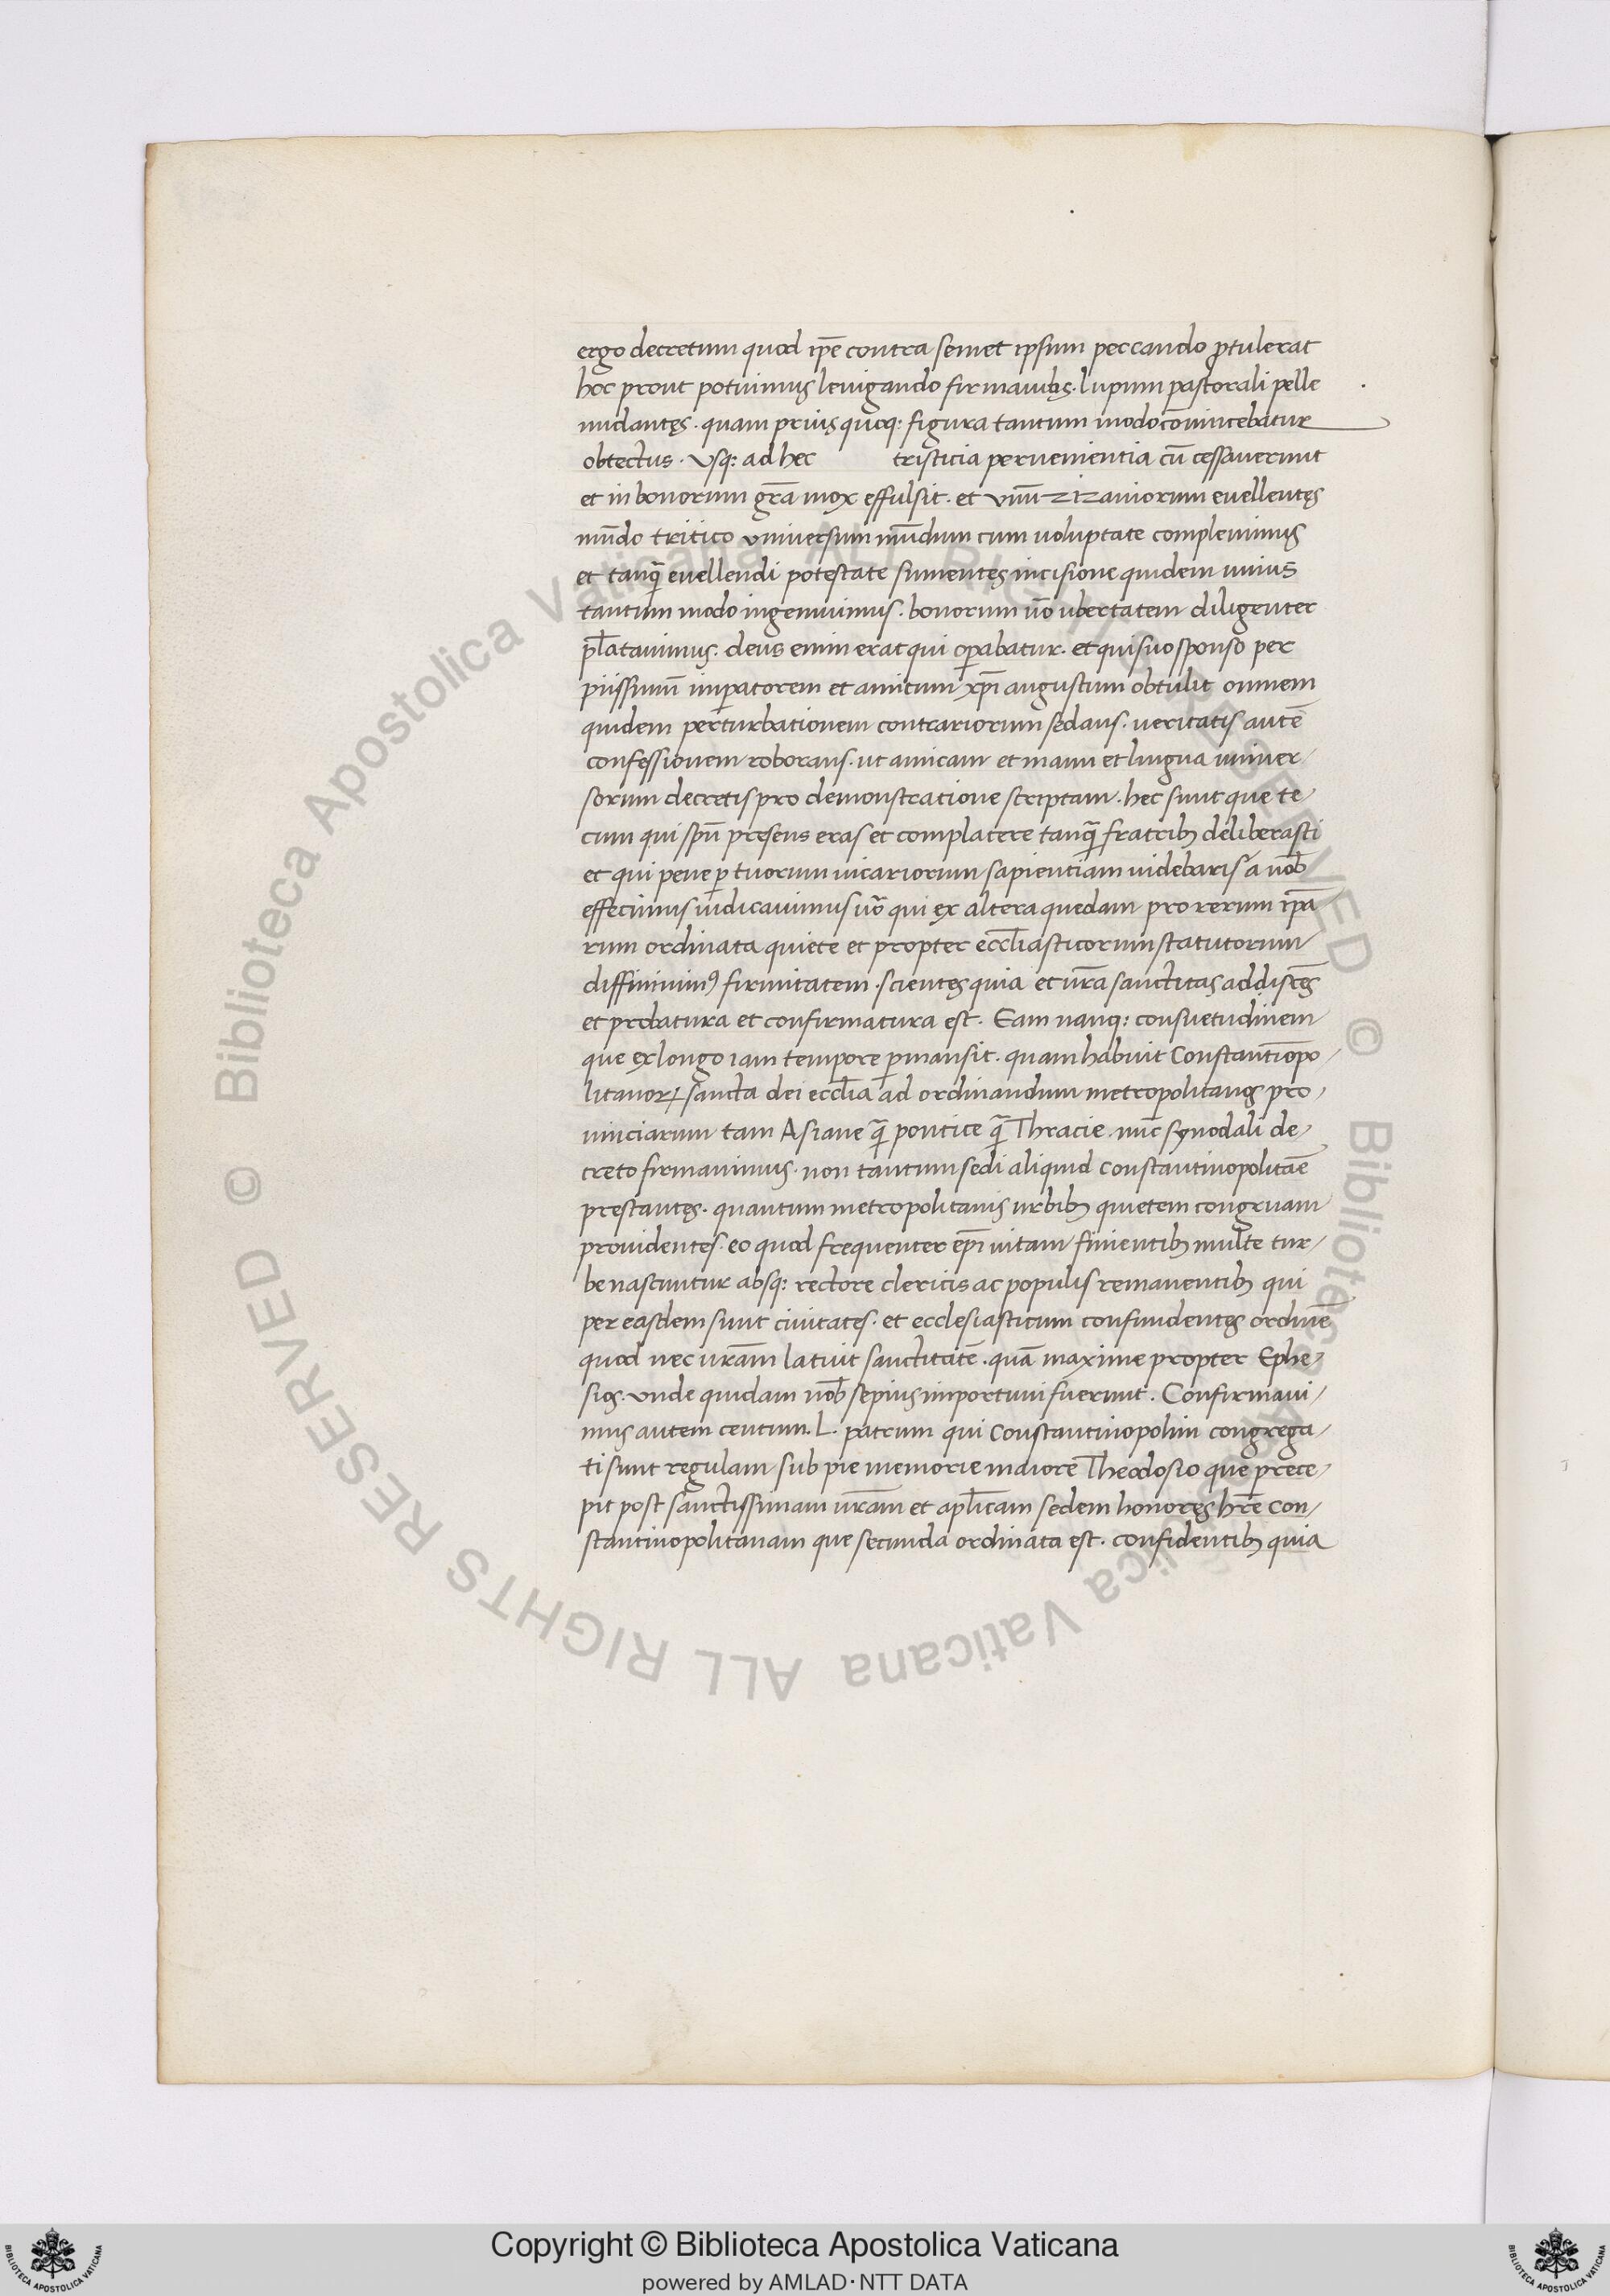 ergo decretum quod ip̄e contra semet ipsum peccando ꝓtulerat
hoc prout potuimus leuigando firmauimus. lupum pastorali pelle
nudantes. quam prius quoq: figura tantum modo cōmincebatur
obtectus. Vsq: ad hec tristicia peruenientia cū cessauerunt
et in bonorum gr̄a mox effulsit. et vnū zizaniorum euellentes
mūdo tritico vniuersum mūdum cum uoluptate compleuimus
et tanq̄ euellendi potestate sumentes incisione quidem unius
tantum modo ingemuimus. bonorum ūo ubertatem diligenter
pl̄atauimus. deus enim erat qui oꝑabatur. et qui suo sponso per
piissimū imꝑatorem et amicum xp̄i augustum obtulit omnem
quidem perturbationem contrariorum sedans. ueritatis autē
confessionem roborans. ut amicam et manu et lingua uniuer
sorum decretis pro demonstratione scriptam. hec sunt que te
cum qui spū presens eras et complacere tanq̄ fratribꝫ deliberasti
et qui pene ꝑ tuorum uicariorum sapientiam uidebaris a nob̄
effecimus iudicauimus ūo qui ex altera quedam pro rerum ip̄a
rum ordinata quiete et propter eccl̄iasticorum statutorum
diffinimiꝰ firmitatem. scientes quia et ur̄a sanctitas addiscēs
et probatura et confirmatura est. Eam nanq: consuetudinem
que ex longo iam tempore ꝑmansit. quam habuit Constantiōpo
litanoꝝ sancta dei eccl̄ia ad ordinandum metropolitanos pro
uinciarum tam Asiane q̄ pontice q̄ Thracie. nūc synodali de
creto firmauimus. non tantum sedi aliquid constantinopolitāe
prestantes. quantum metropolitanis urbibꝫ quietem congruam
prouidentes. eo quod frequenter ep̄i uitam finientibꝫ multe tur
be nascuntur absq: rectore clericis ac populis remanentibꝫ qui
per easdem sunt ciuitates. et ecclesiasticum confundentes ordinē
quod nec ur̄am latuit sanctitatē. quā maxime propter Ephe
sios. vnde quidam nob̄ sepius importuni fuerunt. Confirmaui
mus autem centum. L. patrum qui Constantinopolim congrega
ti sunt regulam sub pie memorie maiore Theodosio que prece
pit post sanctissimam ur̄am et apl̄icam sedem honores hr̄e con
stantinopolitanam que secunda ordinata est. confidentibꝫ quia
© Biblioteca Apostolica Vaticana ALL RIGHTS RESERVED © Biblioteca Apostolica Vaticana ALL RIGHTS RESERVED
Copyright © Biblioteca Apostolica Vaticana
powered by AMLAD·NTT DATA
BIBLIOTECA APOSTOLICA VATICANA
BIBLIOTECA APOSTOLICA VATICANA